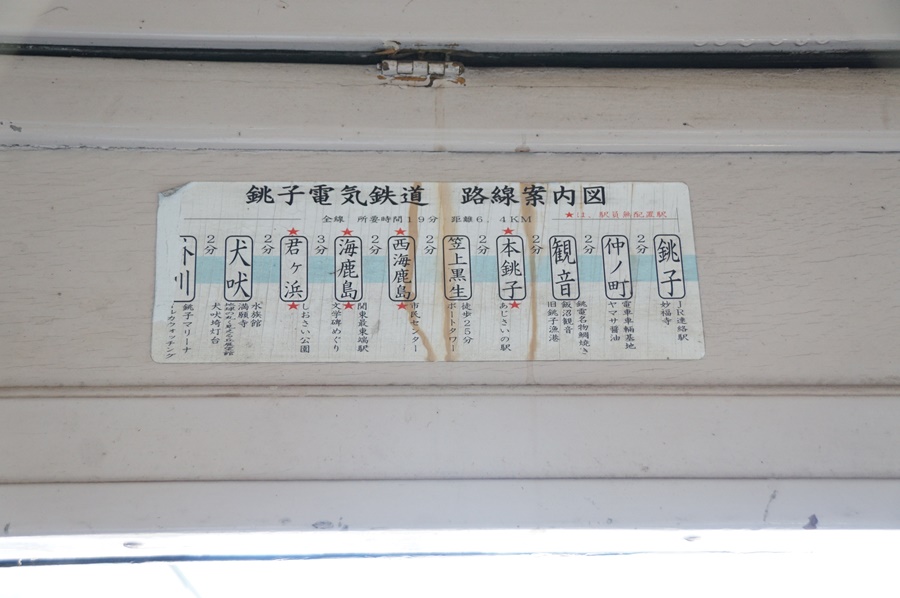 銚子電気鉄道 路線案内図
全線 所要時間19分 距離6.4KM
★は、駅員無配置駅
銚子
JR連絡駅
妙福寺
2分
仲ノ町
電車車輌基地
ヤマサ醤油
2分
観音
銚電名物鯛焼き
飯沼観音
旧銚子漁港
2分
★
本銚子
★
あじさいの駅
2分
笠上黒生
徒歩25分
ポートタワー
2分
★
西海鹿島
★
市民センター
2分
★
海鹿島
★
関東最東端駅
文学碑めぐり
3分
★
君ヶ浜
★
しおさい公園
2分
犬吠
水族館
満願寺
地球の丸く見える丘展望館
犬吠埼灯台
2分
外川
銚子マリーナ
イルカウォッチング